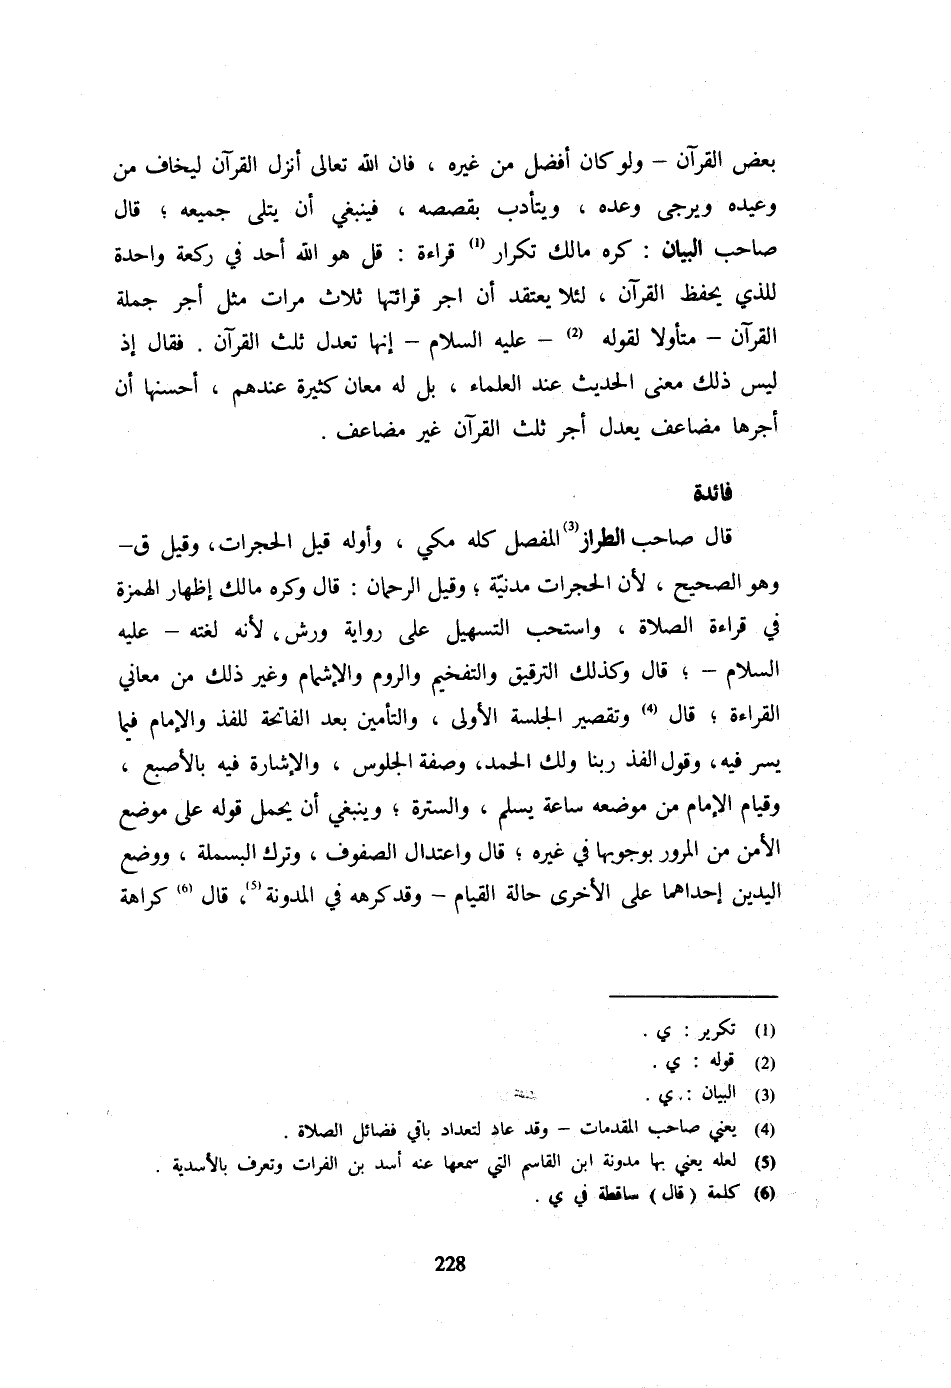 بعض القرآن – ولو كان أفضل من غيره ، فان الله تعالى أنزل القرآن ليخاف من
وعيده ويرجى وعده ، ويتأدب بقصصه ، فينبغي أن يتلى جميعه ؛ قال
صاحب البيان : كره مالك تكرار (1) قراءة : قل هو الله أحد في ركعة واحدة
للذي يحفظ القرآن ، لئلا يعتقد أن اجر قرائتها ثلاث مرات مثل أجر جملة
القرآن – متأولا لقوله (2) – عليه السلام – إنها تعدل ثلث القرآن . فقال إذ
ليس ذلك معنى الحديث عند العلماء ، بل له معان كثيرة عندهم ، أحسنها أن
أجرها مضاعف يعدل أجر ثلث القرآن غير مضاعف .
فائدة
قال صاحب الطراز(3) المفصل كله مكي ، وأوله قيل الحجرات، وقيل ق–
وهو الصحيح ، لأن الحجرات مدنيّة ؛ وقيل الرحمان : قال وكره مالك إظهار الهمزة
في قراءة الصلاة ، واستحب التسهيل على رواية ورش، لأنه لغته – عليه
السلام – ؛ قال وكذلك الترقيق والتفخيم والروم والإشمام وغير ذلك من معاني
القراءة ؛ قال (4) وتقصير الجلسة الأولى ، والتأمين بعد الفاتحة للفذ والإمام فيما
يسر فيه، وقول الفذ ربنا ولك الحمد، وصفة الجلوس ، والإشارة فيه بالأصبع ،
وقيام الإمام من موضعه ساعة يسلم ، والسترة ؛ وينبغي أن يحمل قوله على موضع
الأمن من المرور بوجوبها في غيره ؛ قال واعتدال الصفوف ، وترك البسملة ، ووضع
اليدين إحداهما على الأخرى حالة القيام – وقد كرهه في المدونة (5)، قال (6) كراهة
(1) تكرير : ي .
(2) قوله : ي .
(3) البيان : ي .
(4) يعني صاحب المقدمات – وقد عاد لتعداد باقي فضائل الصلاة .
(5) لعله يعني بها مدونة ابن القاسم التي سمعها عنه أسد بن الفرات وتعرف بالأسدية .
(6) كلمة (قال) ساقطة في ي .
228